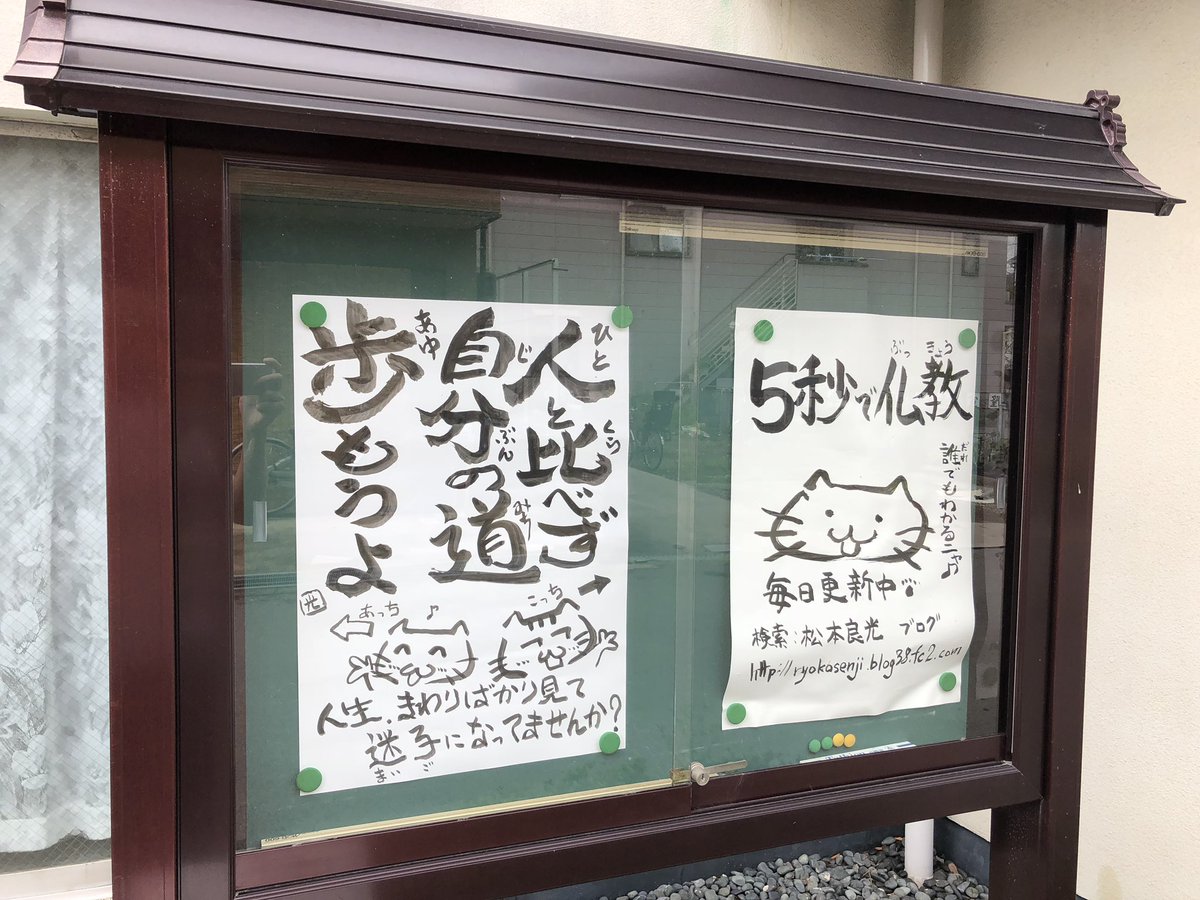 ひと くら
人と比べず
じ ぶん みち
自分の道
あゆ
歩もうよ
光
あっち ♪
こっち
人生、まわりばかり見て
迷子になってませんか?
まいご
ぶっ きょう
5秒で仏教
だれ
誰でもわかるニャ♪
毎日更新中
検索:松本良光 ブログ
http://ryokasenji.blog38.fc2.com